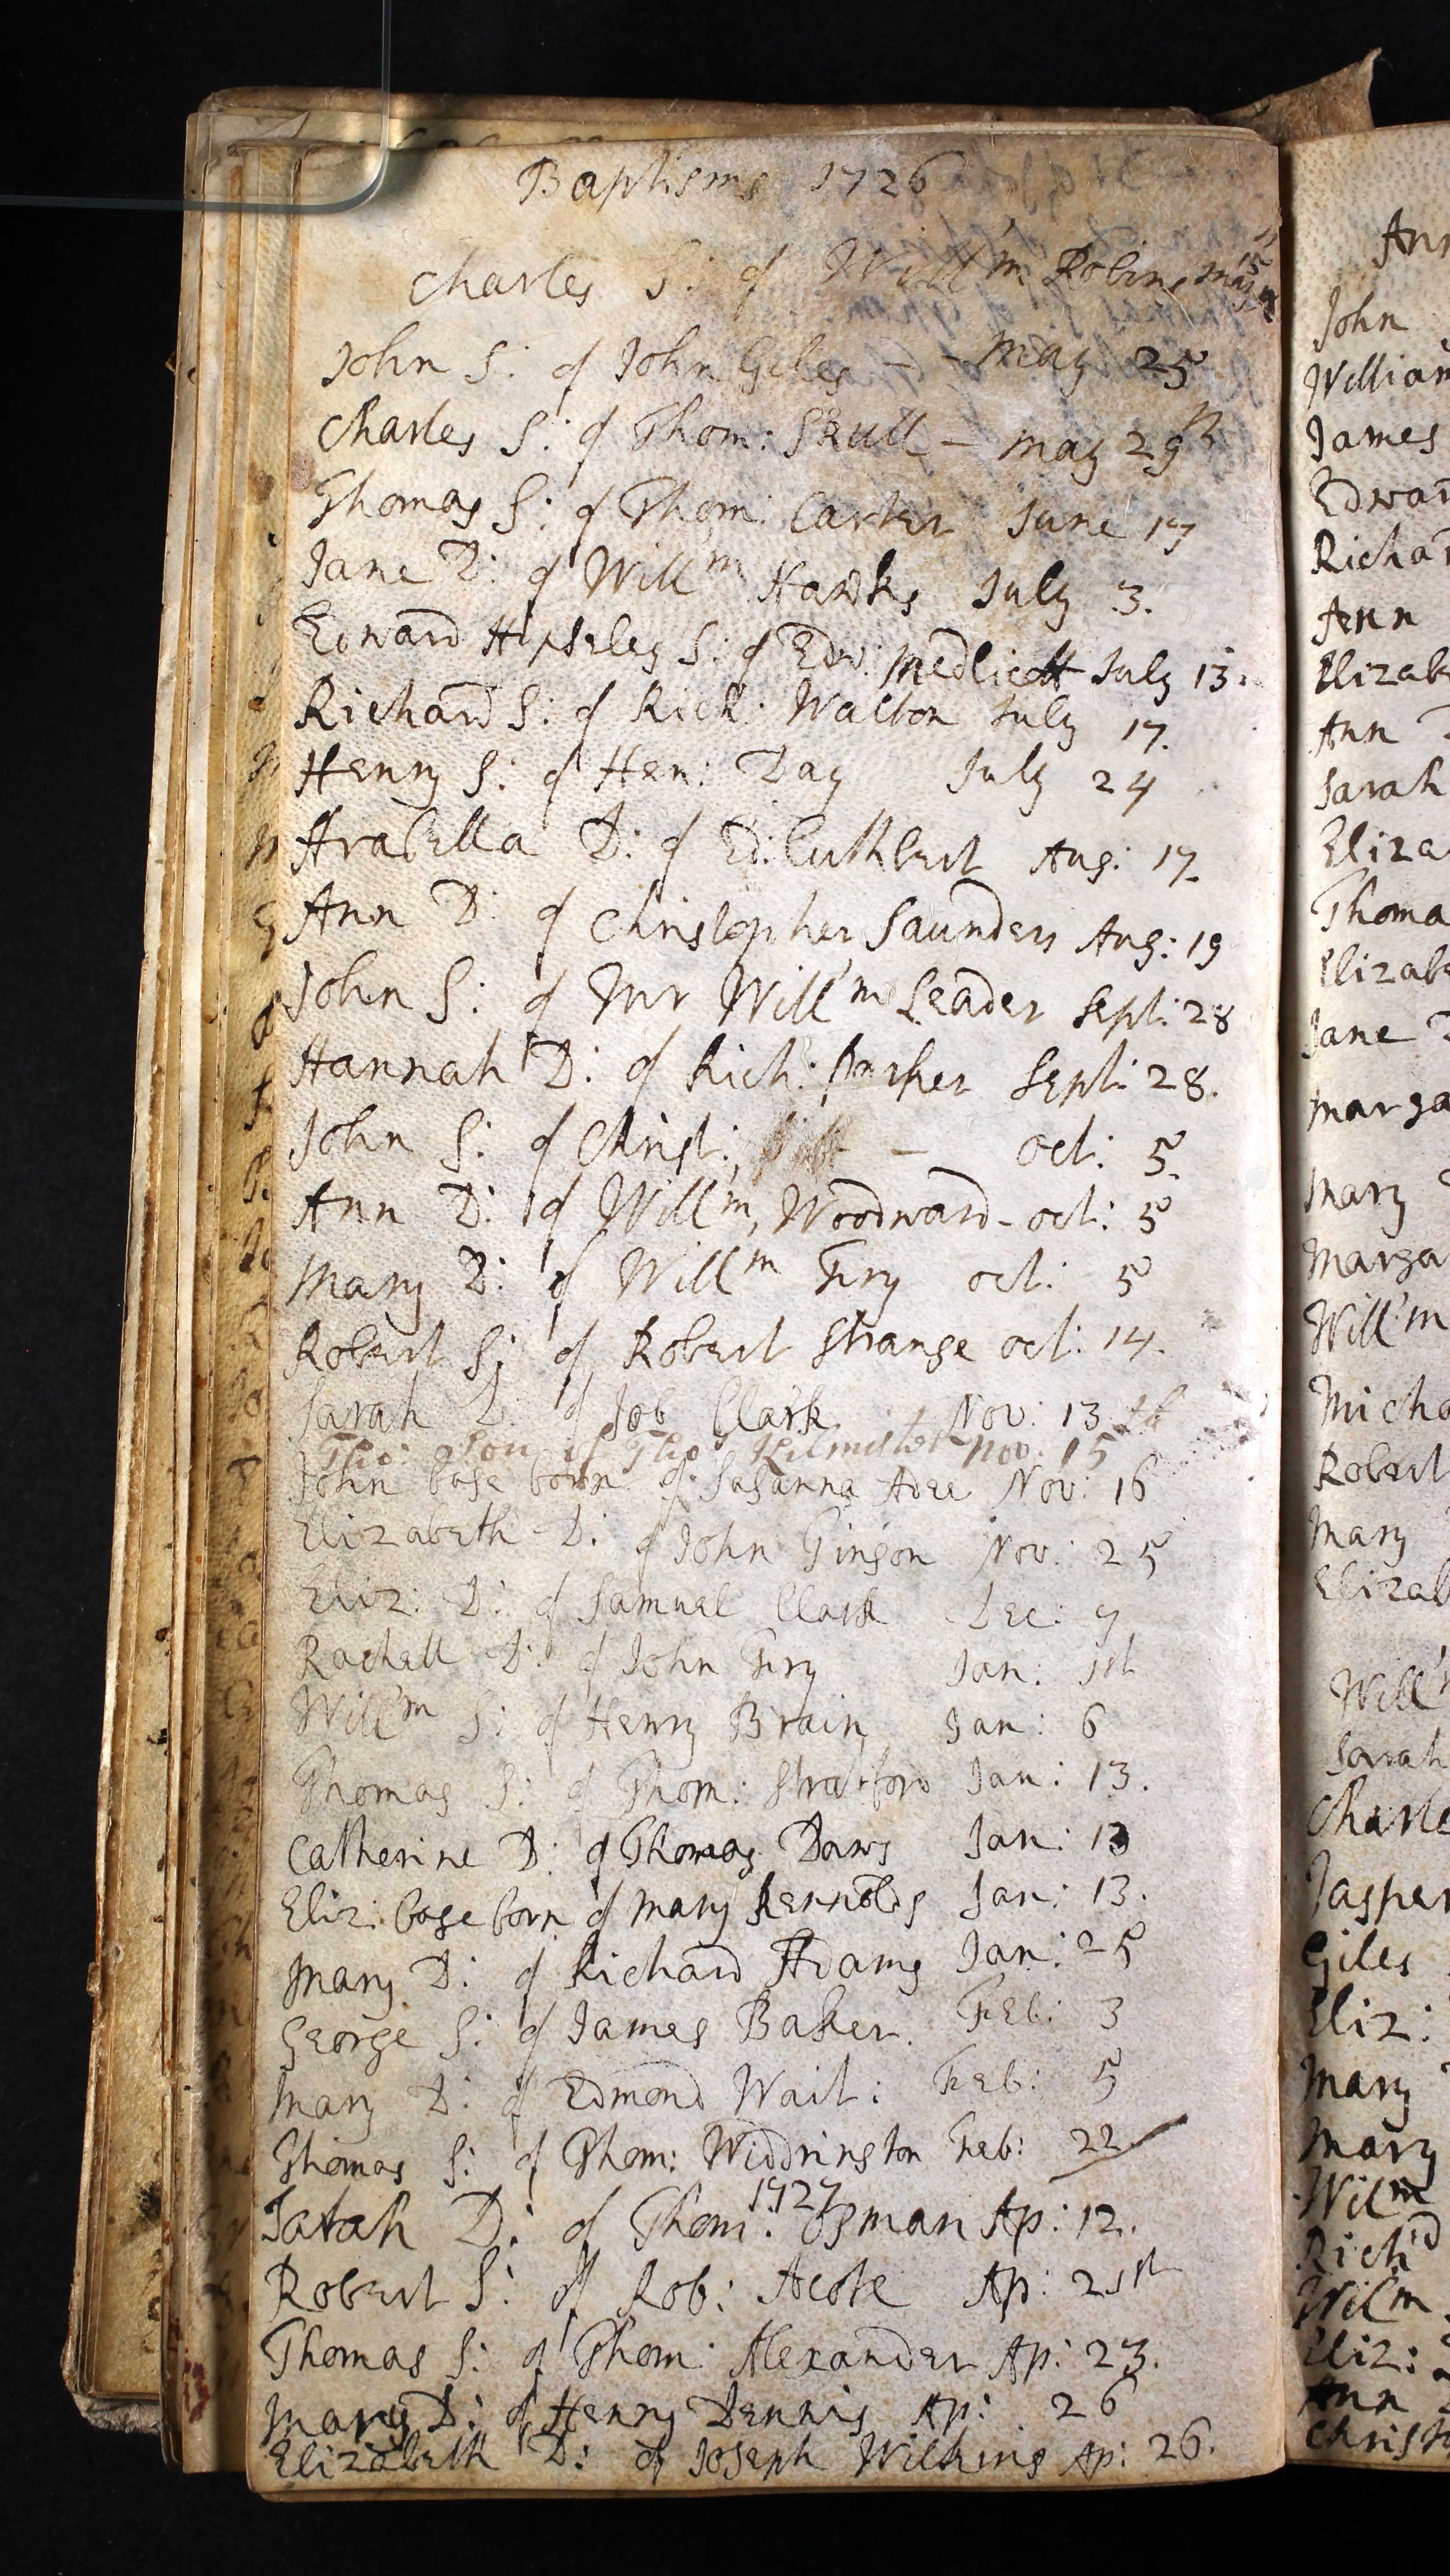 Baptisms 1726
Charles S: of Will'm Robins May
John S: of John Giles - - May 25
Charles S: of Thom: Skull - May 29th
Thomas S: of Thom: Carter June 17
Jane D: of Will'm Hawks July 3.
Edward Hipseley S: of Edw: Medlicott July 13.
Richard S: of Rich: Walton July 17.
Henry S: of Hen: Day July 24
Arabella D: of Ed: Cuthbert Aug: 17.
Ann D: of Christopher Saunders Aug: 19
John S: of Mr Will'm Leader Sept: 28
Hannah D: of Rich: Parker Sept: 28.
John S: of Christ: - Oct: 5.
Ann D: of Will'm Woodward - Oct: 5
Mary D: of Will'm Fry Oct: 5
Robert S: of Robert Strange Oct: 14.
Sarah D: of Job Clark Nov: 13th
Tho: Son of Tho: Kilmister Nov: 15
John base born of Susanna Adee Nov: 16
Elizabeth D: of John Ginson Nov: 25
Eliz: D: of Samuel Clark Dec: 7
Rachell D: of John Fry Jan: 1st
Will'm S: of Henry Brain Jan: 6
Thomas S: of Thom: Stratford Jan: 13.
Catherine D: of Thomas Daws Jan: 13
Eliz: base born of Mary Rennolds Jan: 13.
Mary D: of Richard Adams Jan: 25
George S: of James Baker. Feb: 3
Mary D: of Edmond Wait: Feb: 5
Thomas S: of Thom: Widdrington Feb: 22
1727
Sarah D: of Thom: Osman Ap: 12.
Robert S: of Rob: Acok Ap: 21st
Thomas S: of Thom: Alexander Ap: 23.
Mary D: of Henry Dennis Ap: 26
Elizabeth D: of Joseph Wilkins Ap: 26.
John
William
James
Edwar
Richar
Ann
Elizab
Ann
Sarah
Eliza
Thoma
Elizab
Jane
Marga
Mary
Marga
Will'm
Micha
Robert
Mary
Elizab
Will'm
Sarah
Charle
Jasper
Giles
Eliz:
Mary
Mary
Wilm
Rich'd
Wilm
Eliz:
Ann
Christ